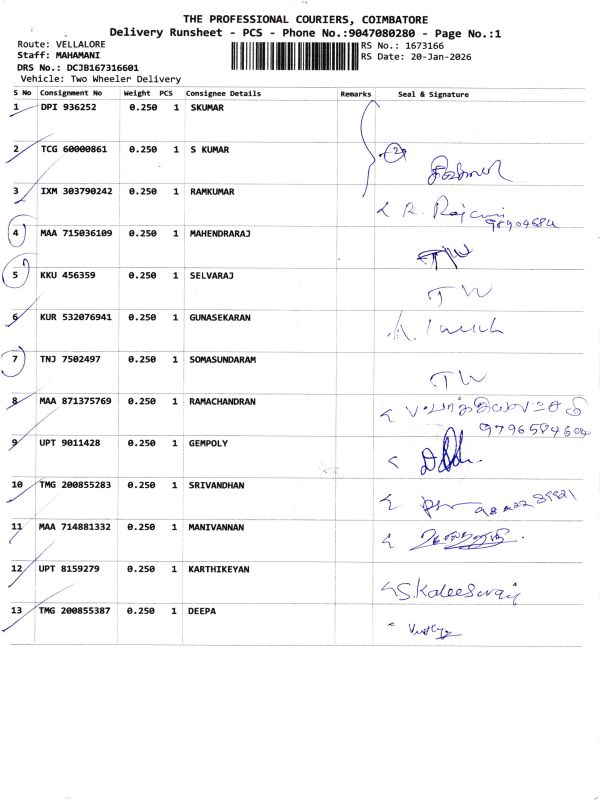 THE PROFESSIONAL COURIERS, COIMBATORE
Delivery Runsheet - PCS - Phone No.:9047080280 - Page No.:1
Route: VELLALORE RS No.: 1673166
Staff: MAHAMANI RS Date: 20-Jan-2026
DRS No.: DCJB167316601
Vehicle: Two Wheeler Delivery
S No Consignment No Weight PCS Consignee Details Remarks Seal & Signature
1 DPI 936252 0.250 1 SKUMAR
2 TCG 60000861 0.250 1 S KUMAR
3 IXM 303790242 0.250 1 RAMKUMAR
R. Rajani
4 MAA 715036109 0.250 1 MAHENDRARAJ
TW
5 KKU 456359 0.250 1 SELVARAJ
TW
6 KUR 532076941 0.250 1 GUNASEKARAN
7 TNJ 7502497 0.250 1 SOMASUNDARAM
TW
8 MAA 871375769 0.250 1 RAMACHANDRAN
9796584604
9 UPT 9011428 0.250 1 GEMPOLY
10 TMG 200855283 0.250 1 SRIVANDHAN
11 MAA 714881332 0.250 1 MANIVANNAN
12 UPT 8159279 0.250 1 KARTHIKEYAN
S. Kaleeswary
13 TMG 200855387 0.250 1 DEEPA